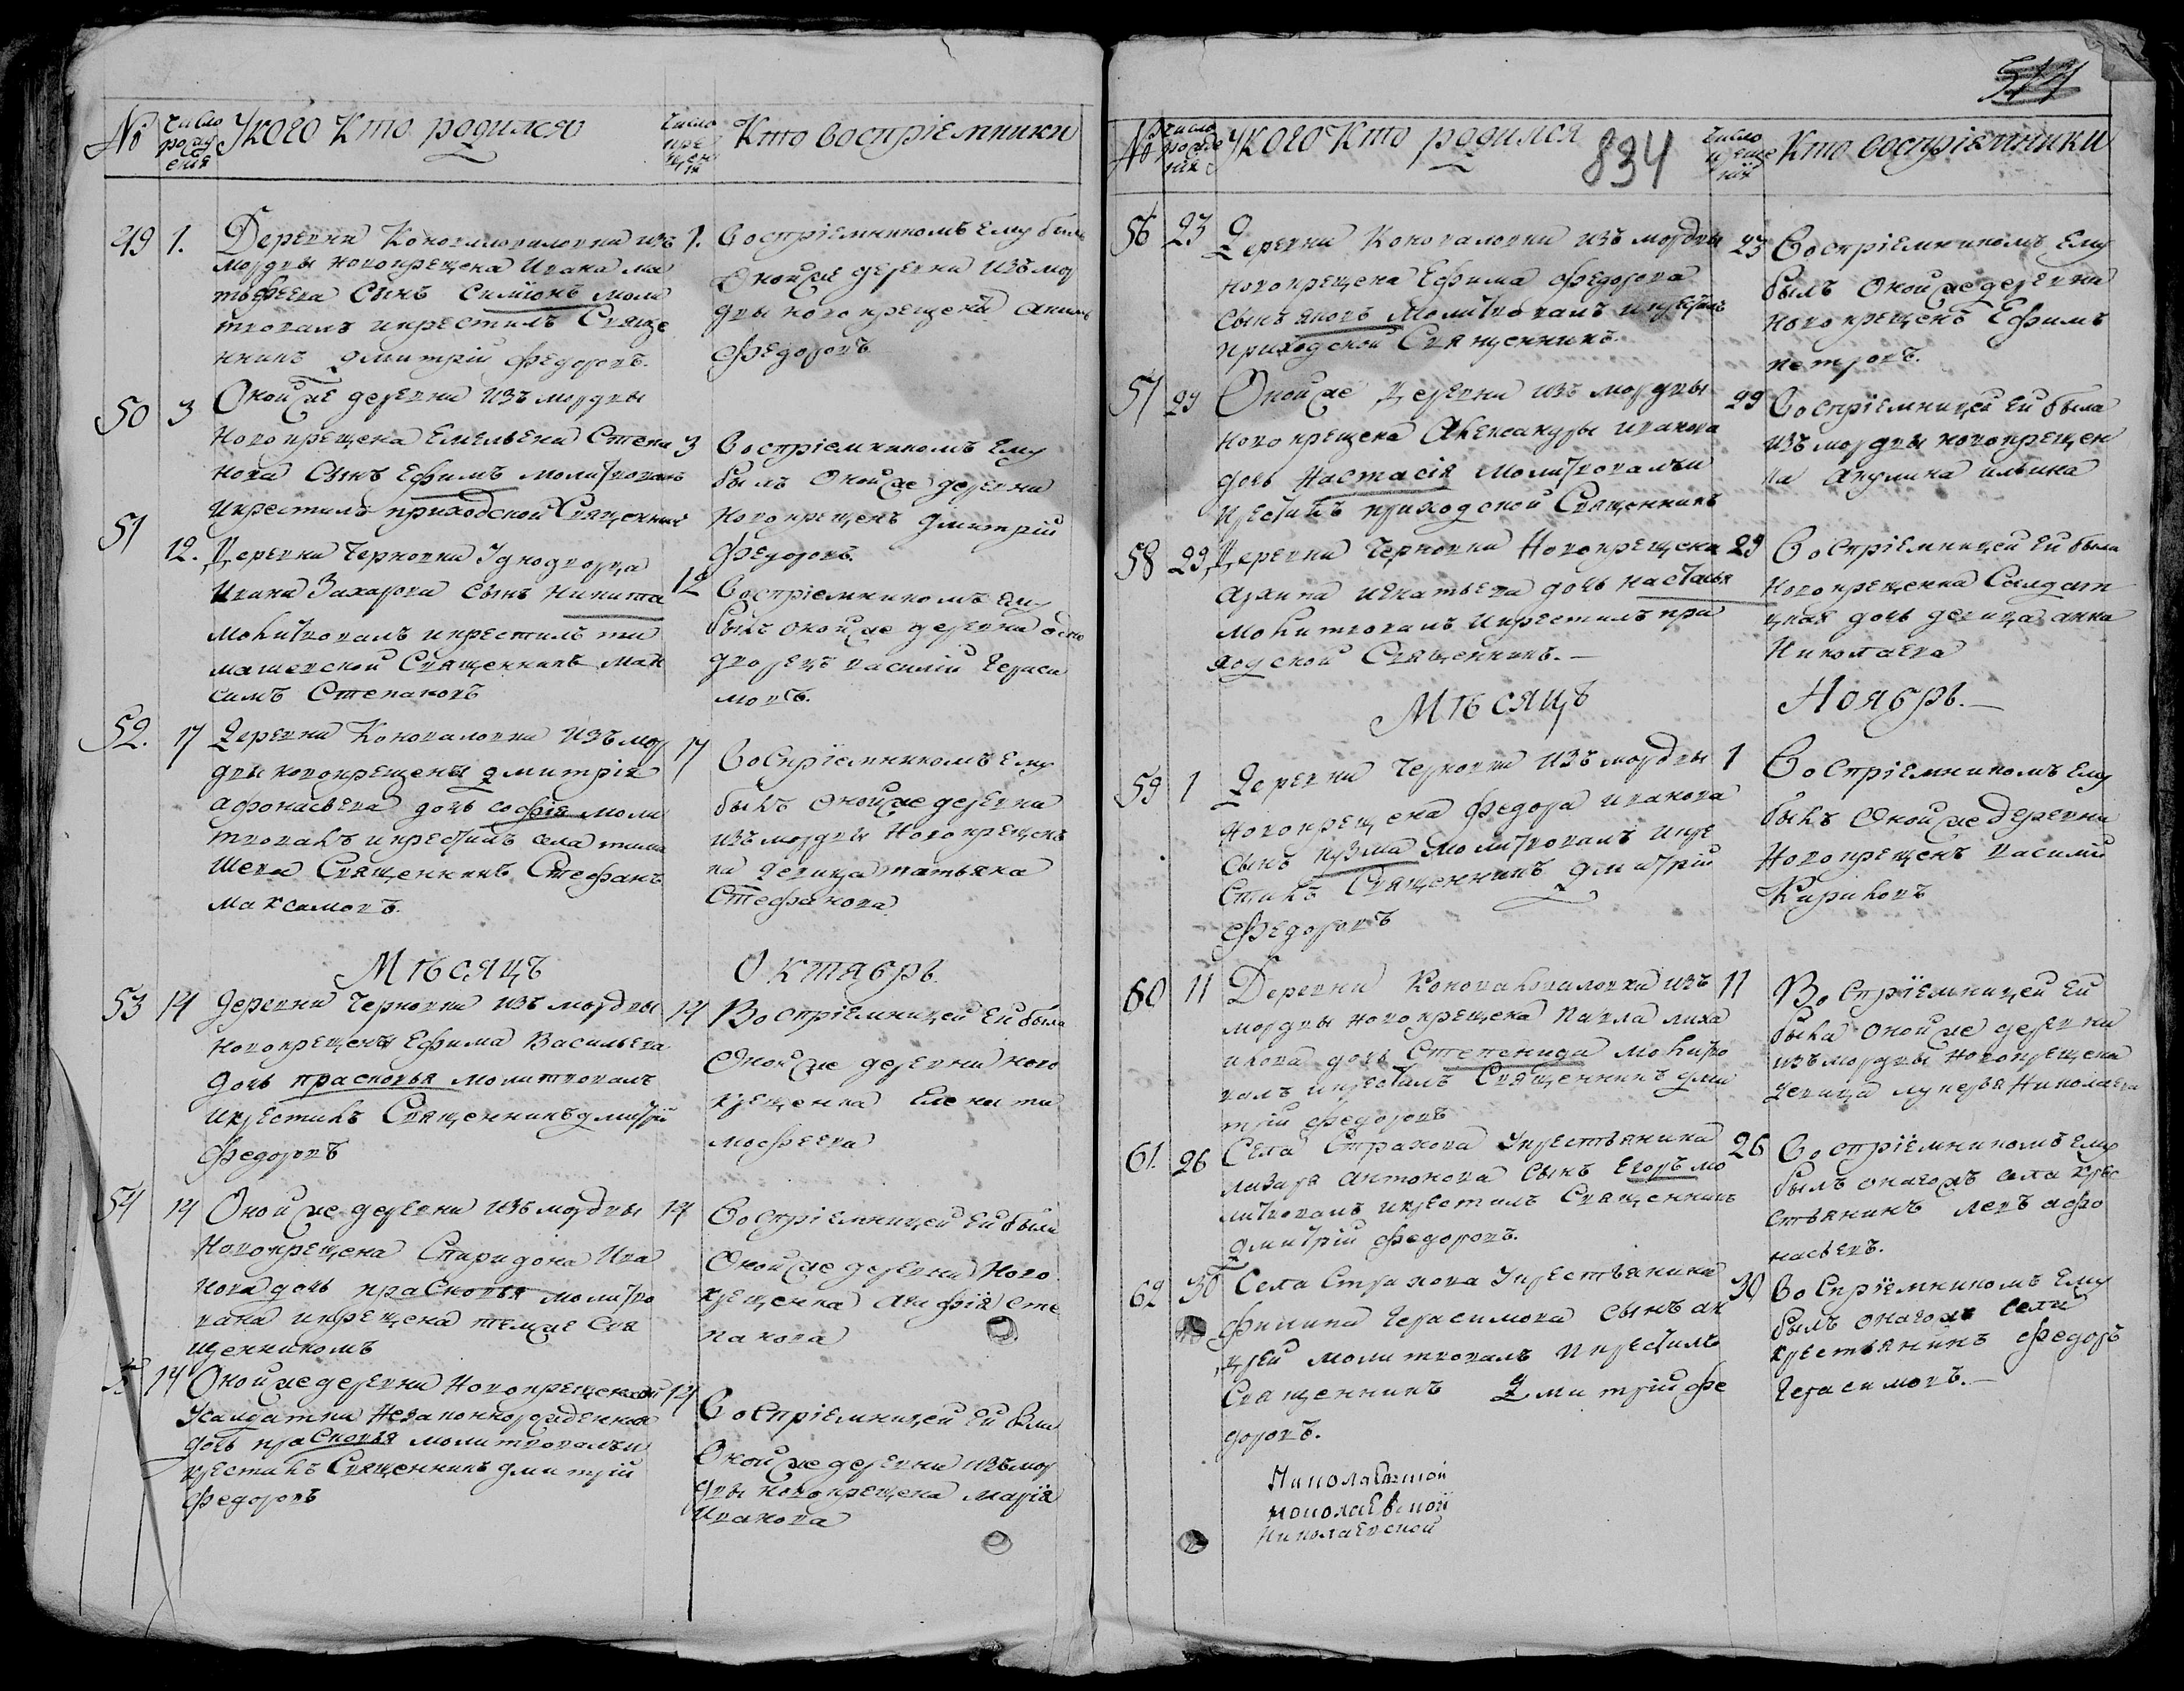 № число рождения У кого кто родился число крещения Кто восприемники
49 1. Деревни Коновмловаловки изъ
мордвы новокрещена Ивана ма
тофеева сынъ Симионъ моли
твовалъ и крестилъ Свяще
нникъ дмитрій федоровъ.
1. Воспріемникомъ ему былъ
Оной же деревни изъ мор
двы новокрещенъ
федоровъ
50 3 Оной же деревни изъ мордвы
новокрещена Емельена Степа
нова сынъ Ефимъ молитвовалъ
и крестилъ приходской Священникъ
3 Воспріемникомъ ему
былъ Оной же деревни
новокрещенъ дмитрій
Федоровъ
51 12. Деревни Черновки Iднодворца
Ивана Захарова сынъ Никита
молитвовалъ и крестилъ ти
машевской Священникъ мак
симъ Степановъ
12 Воспріемникомъ ему
былъ оной же деревни одно
дворецъ василій Гераси
мовъ.
52. 17 Деревни Коноваловки изъ мор
двы новокрещена дмитрія
афонасьева дочь софія моли
твовалъ и крестилъ села тима
шева Священникъ Стефанъ
максимовъ.
17 Воспріемникомъ ему
былъ Оной же деревни
изъ мордвы новокрещенъ
ка девица татьяна
Стефанова
Мѣсяцъ Октябрь.
53 14 Деревни Черновки изъ мордвы
новокрещена Ефима Васильева
дочь прасковья молитвовалъ
и крестилъ Священникъ дмитрій
Федоровъ
14 Воспріемницей ей была
Оной же деревни ново
крещенка Елена ти
мофеева
54 14 Оной же деревни изъ мордвы
новокрещена Спиридона Ива
нова дочь прасковья молитво
вана и крещена темже Свя
щенникомъ
14 Воспріемницей ей была
Оной же деревни ново
крещенка Сте
панова
14 Оной же деревни новокрещенной
Усалдатки незаконнорожденная
дочь прасковья молитвовалъ и
крестилъ Священникъ дмитрій
Федоровъ
14 Воспріемницей ей бла
Оной же деревни изъ мор
двы новокрещена марія
Иванова
834
№ число рождения У кого кто родился число крещения Кто воспріемники
56 23 Деревни Коноваловки изъ мордвы
новокрещена Ефима Федорова
сынъ яковъ молитвовалъ и крестилъ
приходской Священникъ.
23 Воспріемникомъ Ему
былъ Оной же деревни
новокрещенъ Ефимъ
петровъ.
57 29 Оной же деревни изъ мордвы
новокрещена Александры иванова
дочь Настасія молитвовалъ и
крестилъ приходской Священникъ
29 Воспріемницей ей была
изъ мордвы новокрещен
ка акулина ильина
58 29. Деревни Черновки Новокрещена
архипа игнатьева дочь настасья
молитвовалъ и крестилъ при
ходской Священникъ.
29 Воспріемницей ей была
новокрещенка Салдат
цкая дочь девица анна
Николаева
Мѣсяцъ Ноябрь.
59 1 Деревни Черновки изъ мордвы
новокрещена Федора иванова
сынъ кузма молитвовалъ и кре
стилъ Священникъ дмитрій
Федоровъ
1 Воспріемникомъ ему
былъ Оной же Деревни
Новокрещенъ василий
Кириловъ
60 11 Деревни Коноваловаловки изъ
мордвы новокрещена павла миха
илова дочь Степенида молитво
валъ и крестилъ Священникъ дми
трій федоровъ
11 Воспріемницей ей
была оной же деревни
изъ мордвы новокрещена
девица лукерья Николаева
61. 26 Села Страхова Укрестьянина
лазаря антонова сынъ Егоръ мо
литвовалъ и крестилъ Священникъ
дмитрій федоровъ.
26 Воспріемникомъ ему
былъ онагожъ села крес
стьянинъ левъ афо
насьевъ.
62 30 Села Страхова Укрестьянина
филипа герасимова сынъ ан
дрей молитвовалъ и крестилъ
Священникъ Дмитрій фе
доровъ.
30 Воспріемникомъ ему
былъ онагожъ села
крестьянинъ федоръ
Герасимовъ.
Николаевской